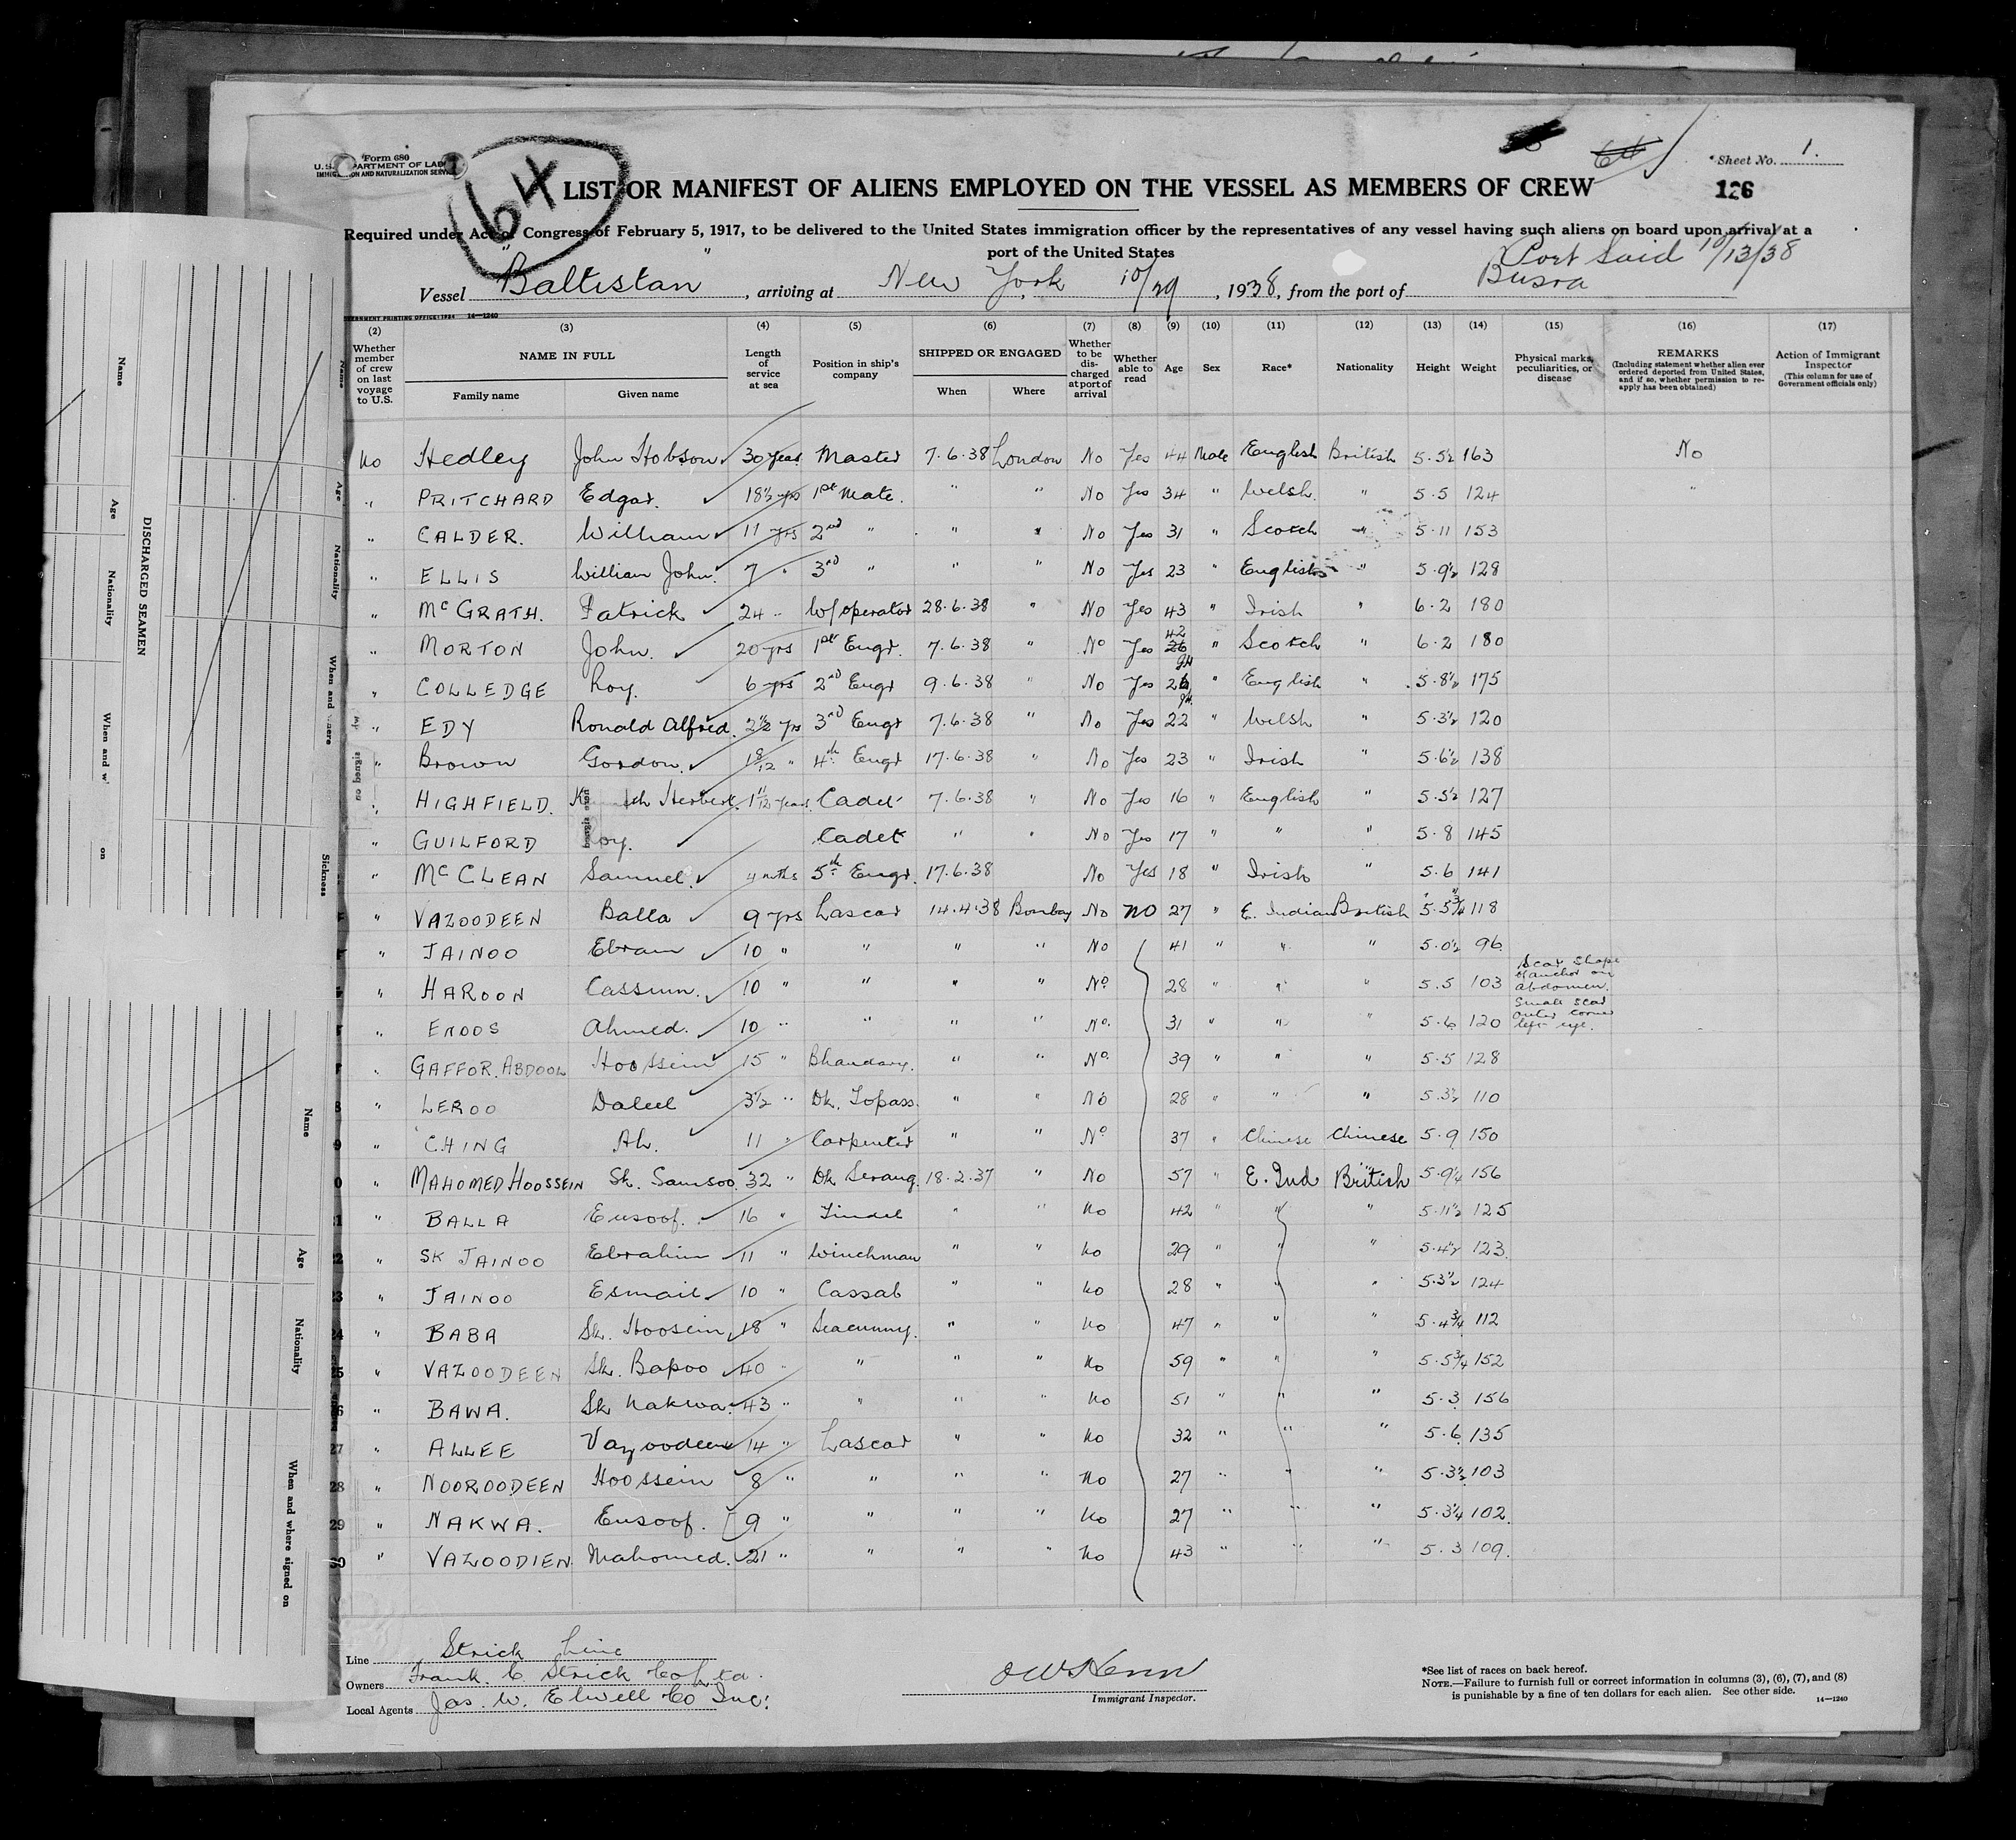 Form 680
U.S. DEPARTMENT OF LABOR
IMMIGRATION AND NATURALIZATION SERVICE
64
64
* Sheet No. 1.
126
LIST OR MANIFEST OF ALIENS EMPLOYED ON THE VESSEL AS MEMBERS OF CREW
Required under Act of Congress of February 5, 1917, to be delivered to the United States immigration officer by the representatives of any vessel having such aliens on board upon arrival at a
port of the United States
Port Said 10/13/38
Vessel "Baltistan", arriving at New York 10/29, 1938, from the port of Busra
GOVERNMENT PRINTING OFFICE: 1934 14—1240
(2) (3) (4) (5) (6) (7) (8) (9) (10) (11) (12) (13) (14) (15) (16) (17)
Whether member of crew on last voyage to U.S.
NAME IN FULL
Family name Given name
Length of service at sea
Position in ship's company
SHIPPED OR ENGAGED
When Where
Whether to be discharged at port of arrival
Whether able to read
Age
Sex
Race*
Nationality
Height
Weight
Physical marks, peculiarities, or disease
REMARKS
(Including statement whether alien ever ordered deported from United States, and if so, whether permission to reapply has been obtained)
Action of Immigrant Inspector
(This column for use of Government officials only)
No Hedley John Hobson 30 years Master 7.6.38 London No Yes 44 Male English British 5.5½ 163 No
" PRITCHARD Edgar. 18½ yrs 1st Mate. " " No Yes 34 " Welsh. " 5.5 124 "
" CALDER. William 11 yrs 2nd " " " No Yes 31 " Scotch " 5.11 153
" ELLIS William John. 7 " 3rd " " " No Yes 23 " English " 5.9½ 128
" McGRATH. Patrick 24 " W/operator 28.6.38 " No Yes 43 " Irish " 6.2 180
" MORTON John. 20 yrs 1st Engr. 7.6.38 " No Yes 42 " Scotch " 6.2 180
" COLLEDGE Roy. 6 yrs 2nd Engr 9.6.38 " No Yes 26 " English " 5.8½ 175
" EDY Ronald Alfred. 2½ yrs 3rd Engr 7.6.38 " No Yes 22 " Welsh " 5.3½ 120
" Brown Gordon. 18/12 " 4th Engr 17.6.38 " No Yes 23 " Irish " 5.6½ 138
" HIGHFIELD. Herbert. 1 11/12 years Cadet 7.6.38 " No Yes 16 " English " 5.5½ 127
" GUILFORD oy. Cadet " " No Yes 17 " " " 5.8 145
" McCLEAN Samuel. 4 mths 5th Engr. 17.6.38 No Yes 18 " Irish " 5.6 141
" VAZOODEEN Balla 9 yrs Lascar 14.4.38 Bombay No NO 27 " E. Indian British 5.5¾ 118
" JAINOO Ebram 10 " " " " No 41 " " " 5.0½ 96
" HAROON Cassum. 10 " " " " No 28 " " " 5.5 103 Scar shape of anchor on abdomen.
" ENOOS Ahmed. 10 " " " " No. 31 " " " 5.6 120 Small scar outer corner left eye.
" GAFFOR. ABDOOL Hoossein 15 " Bhandary. " " No 39 " " " 5.5 128
" LEROO Daleel 3½ " Dk. Topass. " " No 28 " " " 5.3½ 110
" CHING Ah. 11 " Carpenter " " No 37 " Chinese Chinese 5.9 150
" MAHOMED HOOSSEIN Sk. Samsoo. 32 " Dk Serang. 18.2.37 " No 57 " E. Ind British 5.9¼ 156
" BALLA Eusoof. 16 " Tindel " " No 42 " " " 5.11½ 125
" SK JAINOO Ebrahim 11 " Winchman " " No 29 " " " 5.4½ 123
" JAINOO Esmail 10 " Cassab " " No 28 " " " 5.3½ 124
" BABA Sk. Hoosein 18 " Seacunny. " " No 47 " " " 5.4¾ 112
" VAZOODEEN Sk. Bapoo 40 " " " " No 59 " " " 5.5¾ 152
" BAWA. Sk Nakwa. 43 " " " " No 51 " " " 5.3 156
27 " ALLEE Vazoodeen 14 " Lascar " " No 32 " " " 5.6 135
28 " NOOROODEEN Hoossein 8 " " " " No 27 " " " 5.3½ 103
29 " NAKWA. Eusoof. 9 " " " " No 27 " " " 5.3¼ 102.
" VAZOODIEN Mahomed. 21 " " " " No 43 " " " 5.3 109.
Line Strick Line
Owners Frank C Strick Co Ltd.
Local Agents Jas. W. Elwell Co Inc.
Immigrant Inspector.
*See list of races on back hereof.
NOTE.—Failure to furnish full or correct information in columns (3), (6), (7), and (8)
is punishable by a fine of ten dollars for each alien. See other side.
14—1240
DISCHARGED SEAMEN
Name
Age
Nationality
When and w
on
Name
Age
Nationality
When and where
Sickness
Name
Age
Nationality
When and where signed on